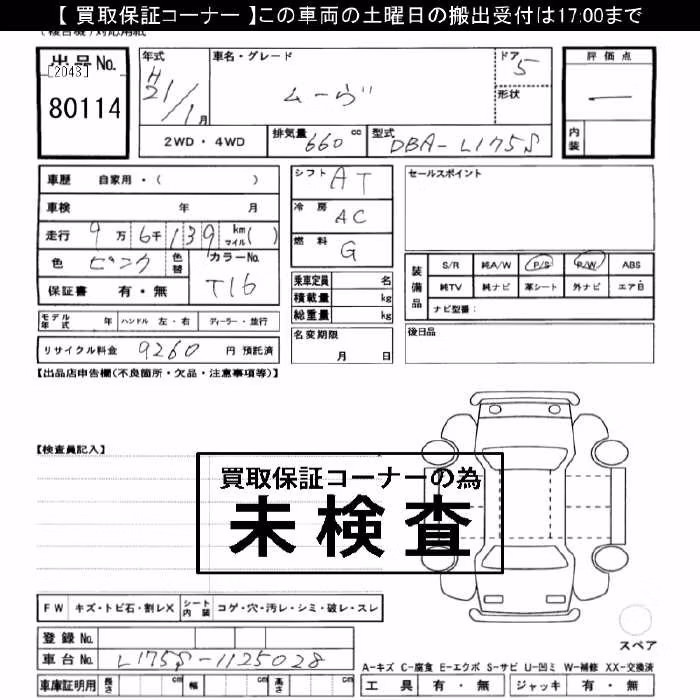 【 買取保証コーナー 】この車両の土曜日の搬出受付は17:00まで
出品No.
[2043]
80114
年式
H21/1月
車名・グレード
ムーヴ
ドア
5
形状
評価点
—
内装
2WD・4WD
排気量 660 cc
型式 DBA-L175S
車歴 自家用・( )
車検 年 月
走行 9万6千139 km マイル( )
色 ピンク 色替
カラーNo. T16
保証書 有・無
シフト AT
冷房 AC
燃料 G
乗車定員 名
積載量 kg
総重量 kg
セールスポイント
装備品
S/R 純A/W P/S P/W ABS
純TV 純ナビ 革シート 外ナビ エアB
ナビ型番:
モデル年式 年 ハンドル 左・右 ディーラー・並行
リサイクル料金 9260 円 預託済
名変期限
月 日
後日品
【出品店申告欄(不良箇所・欠品・注意事項等)】
【検査員記入】
買取保証コーナーの為
未検査
FW キズ・トビ石・割レX シート内装 コゲ・穴・汚レ・シミ・破レ・スレ
登録No.
車台No. L175S-1125028
車庫証明用 長さ cm 幅 cm 高さ cm
スペア
A-キズ C-腐食 E-エクボ S-サビ U-凹ミ W-補修 XX-交換済
工具 有・無 ジャッキ 有・無